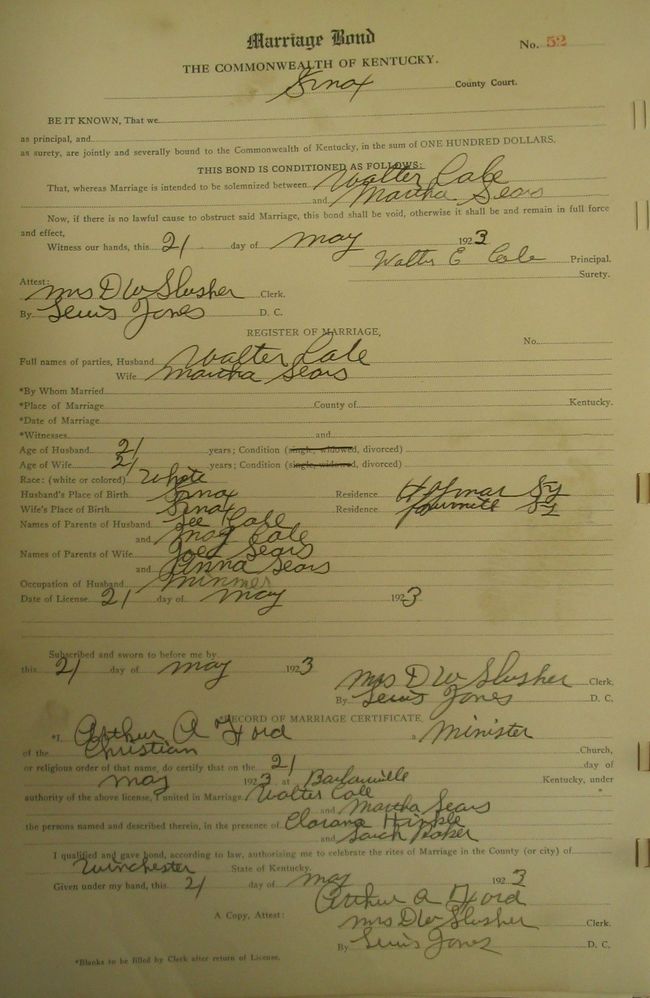 Marriage Bond
No. 52
THE COMMONWEALTH OF KENTUCKY.
Knox County Court.
BE IT KNOWN, That we
as principal, and
as surety, are jointly and severally bound to the Commonwealth of Kentucky, in the sum of ONE HUNDRED DOLLARS.
THIS BOND IS CONDITIONED AS FOLLOWS:
That, whereas Marriage is intended to be solemnized between Walter Cole
and Martha Sears
Now, if there is no lawful cause to obstruct said Marriage, this bond shall be void, otherwise it shall be and remain in full force
and effect,
Witness our hands, this 21 day of May 1923
Walter E Cole Principal.
Surety.
Attest:
Mrs D W Slusher Clerk.
By Lewis Jones D. C.
REGISTER OF MARRIAGE,
No.
Full names of parties, Husband Walter Cole
Wife Martha Sears
*By Whom Married
*Place of Marriage County of Kentucky.
*Date of Marriage
*Witnesses and
Age of Husband 21 years; Condition (single, widowed, divorced)
Age of Wife 21 years; Condition (single, widowed, divorced)
Race: (white or colored) White
Husband's Place of Birth Knox Residence Ky
Wife's Place of Birth Knox Residence Fourmile Ky
Names of Parents of Husband Lee Cole
and May Cole
Names of Parents of Wife Sears
and Anna Sears
Occupation of Husband
Date of License 21 day of May 1923
Subscribed and sworn to before me by
this 21 day of May 1923
Mrs D W Slusher Clerk.
By Lewis Jones D. C.
RECORD OF MARRIAGE CERTIFICATE,
*I Arthur A Ford a Minister
of the Christian Church,
or religious order of that name, do certify that on the 21 day of
May 1923 at Barbourville Kentucky, under
authority of the above license, I united in Marriage Walter Cole
and Martha Sears
the persons named and described therein, in the presence of
and
I qualified and gave bond, according to law, authorizing me to celebrate the rites of Marriage in the County (or city) of
Winchester State of Kentucky.
Given under my hand, this 21 day of May 1923
Arthur A Ford
A Copy, Attest: Mrs D W Slusher Clerk.
By Lewis Jones D. C.
*Blanks to be filled by Clerk after return of License.